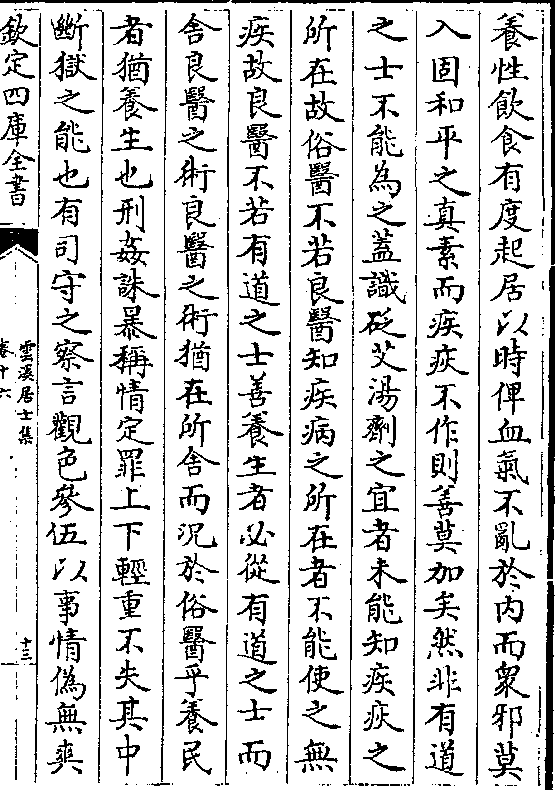 養性飲食有度起居以時俾血氣不亂於内而衆邪莫
入固和平之真素而疾疢不作則善莫加矣然非有道
之士不能為之蓋識砭艾湯劑之宜者未能知疾疢之
所在故俗醫不若良醫知疾病之所在者不能使之無
疾故良醫不若有道之士善養生者必從有道之士而
舍良醫之術良醫之術猶在所舍而況於俗醫乎養民
者猶養生也刑姦誅暴稱情定罪上下輕重不失其中
斷獄之能也有司守之察言觀色參伍以事情偽無爽
欽定四庫全書
雲溪居士集
卷十六
十三